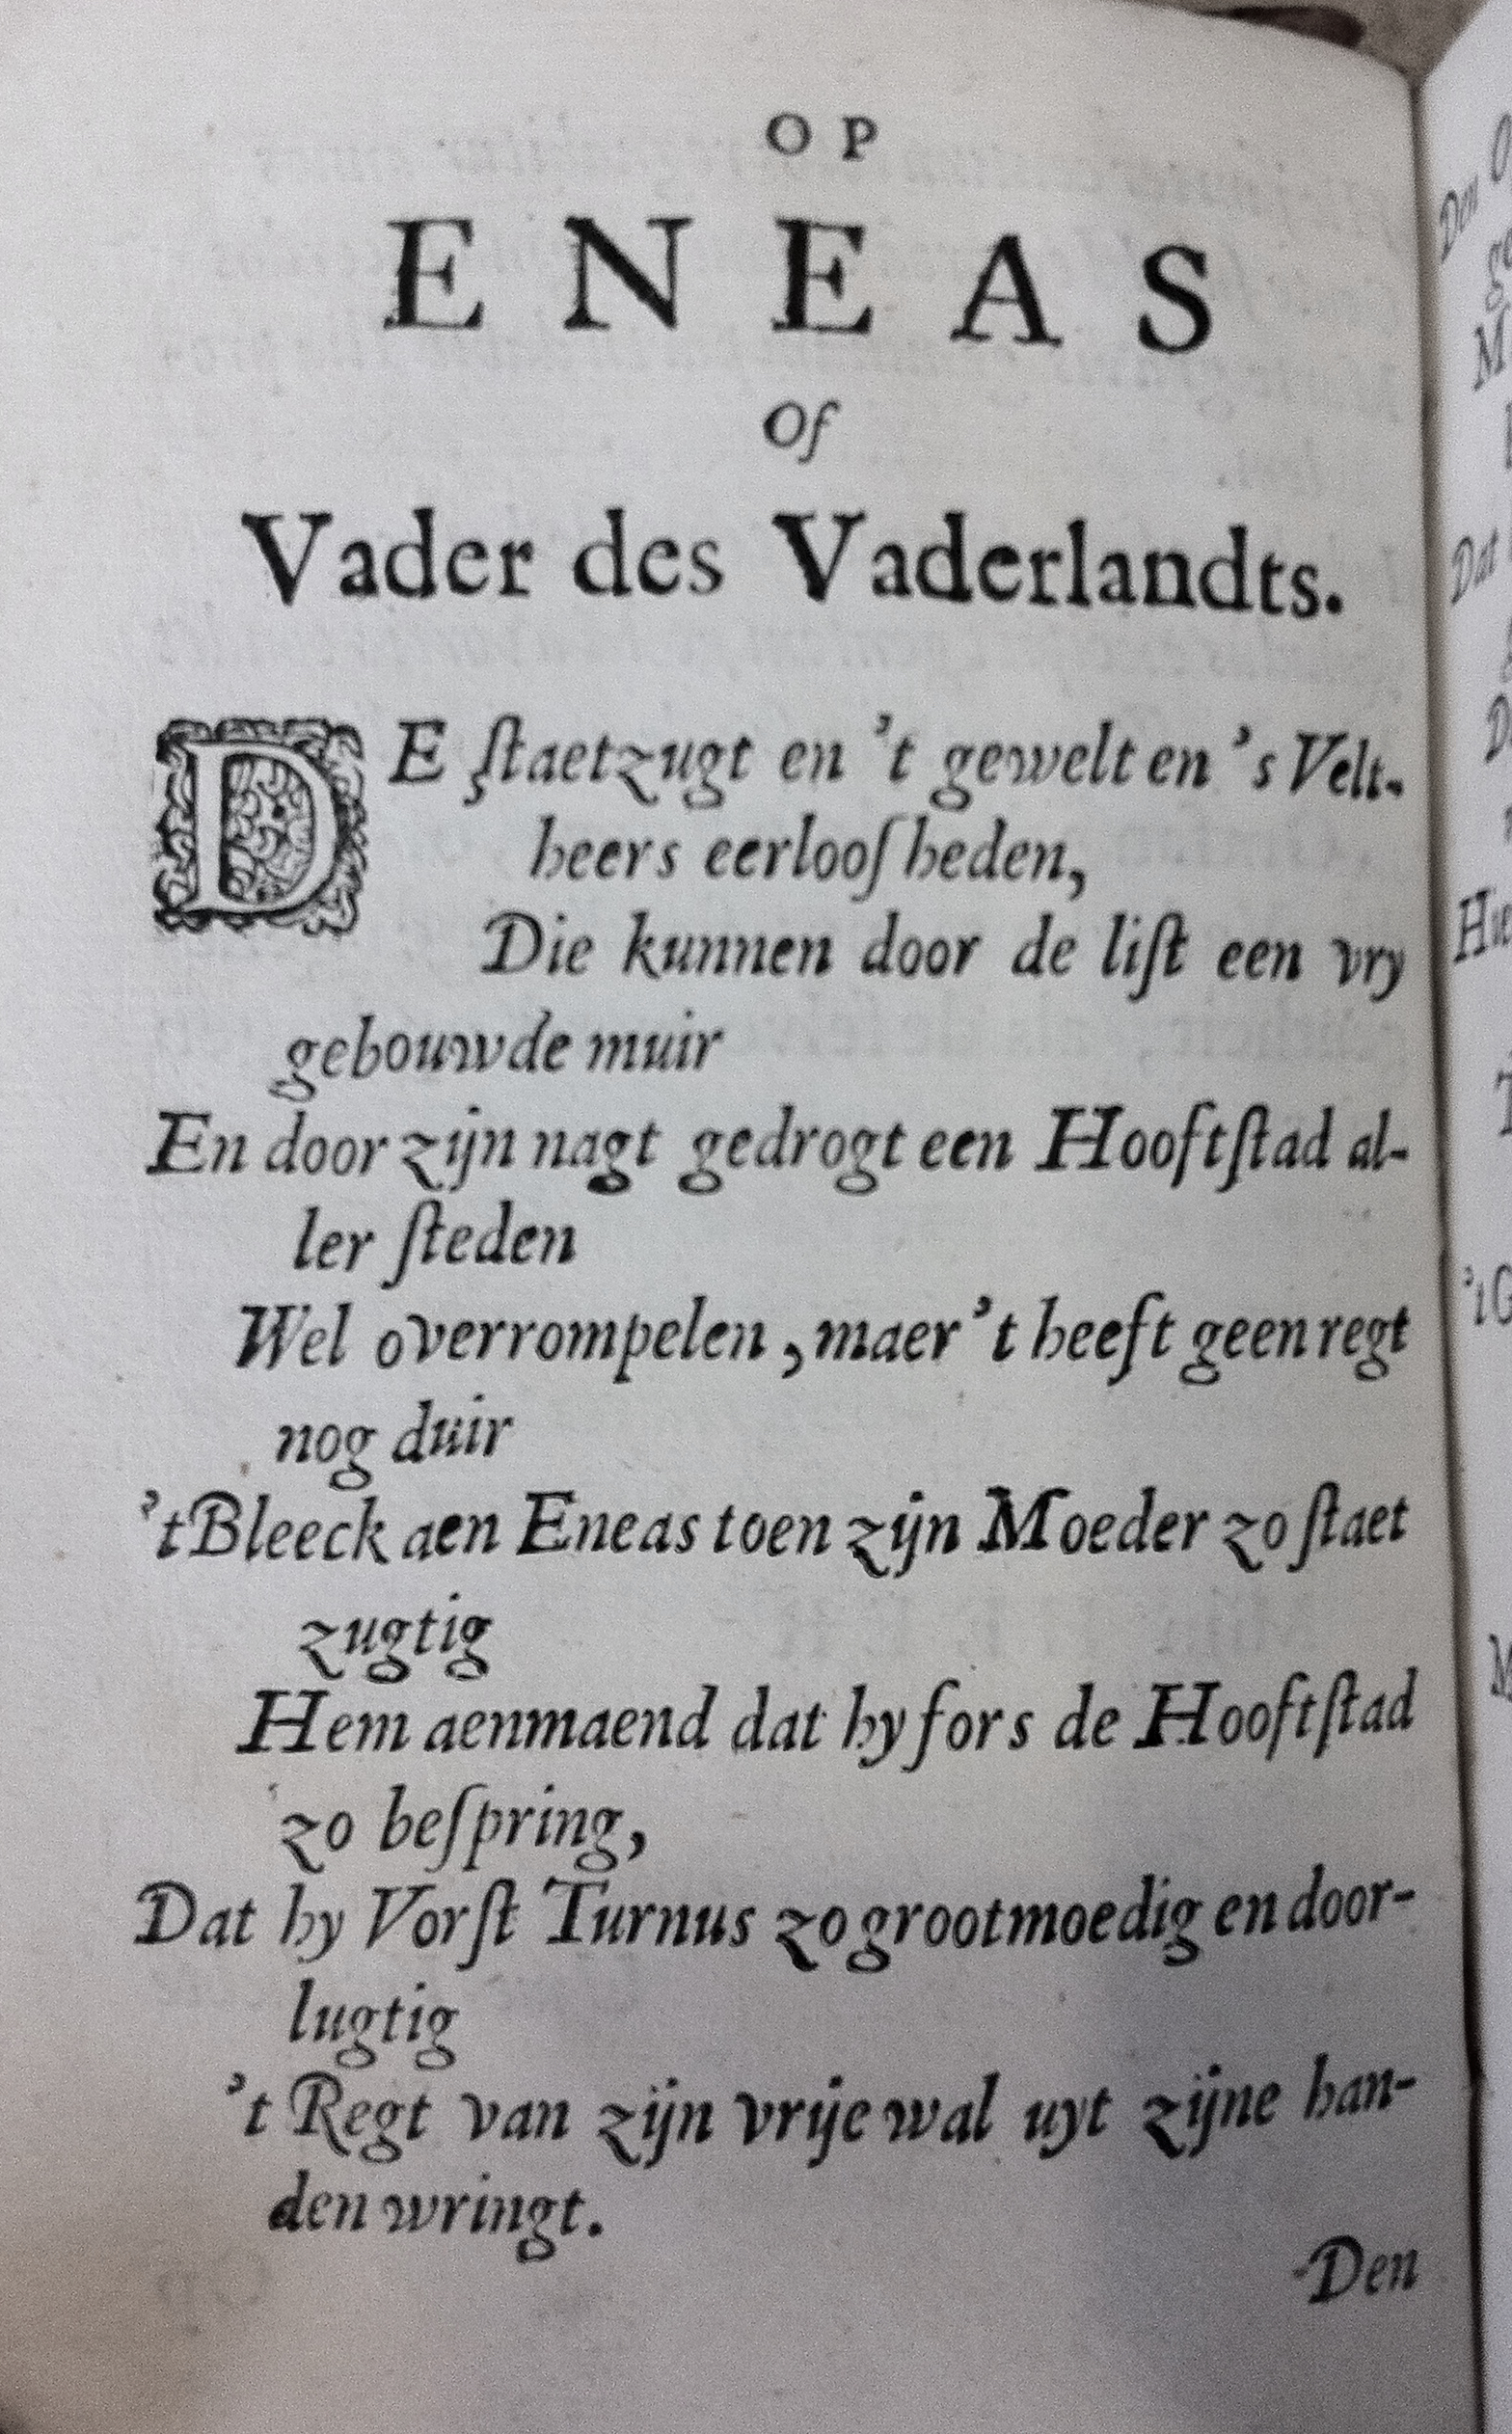 OP
ENEAS
Of
Vader des Vaderlandts.
DE ſtaetzugt en 't gewelt en 's Velt-
heers eerlooſheden,
Die kunnen door de liſt een vry
gebouwde muir
En door zijn nagt gedrogt een Hooftſtad al-
ler ſteden
Wel overrompelen, maer 't heeft geen regt
nog duir
't Bleeck aen Eneas toen zijn Moeder zo ſtaet
zugtig
Hem aenmaend dat hy fors de Hooftſtad
zo beſpring,
Dat hy Vorſt Turnus zo grootmoedig en door-
lugtig
't Regt van zijn vrije wal uyt zijne han-
den wringt.
Den